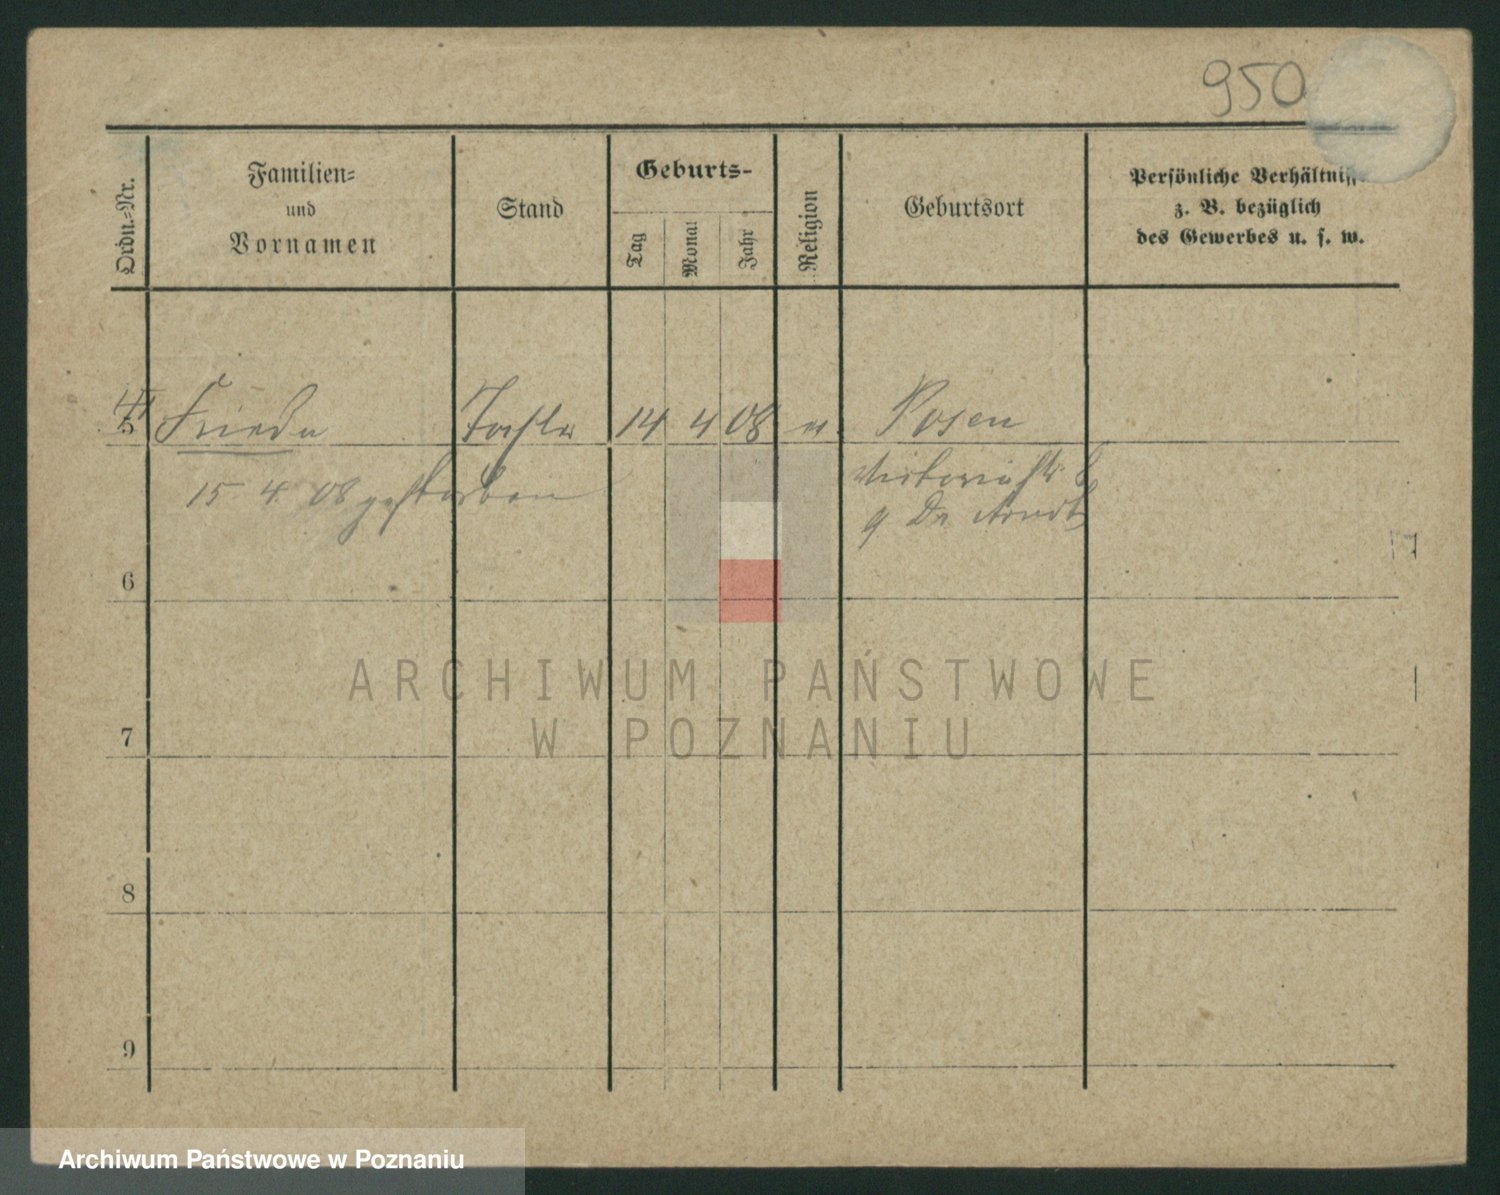 950
Ordn.=Nr.
Familien=
und
Vornamen
Stand
Geburts-
Tag
Monat
Jahr
Religion
Geburtsort
Persönliche Verhältniss
z. B. bezüglich
des Gewerbes u. s. w.
5 Frieda Tochter 14 4 08 Posen
15. 4. 08 gestorben
Dr.
6
ARCHIWUM PAŃSTWOWE
W POZNANIU
7
8
9
Archiwum Państwowe w Poznaniu